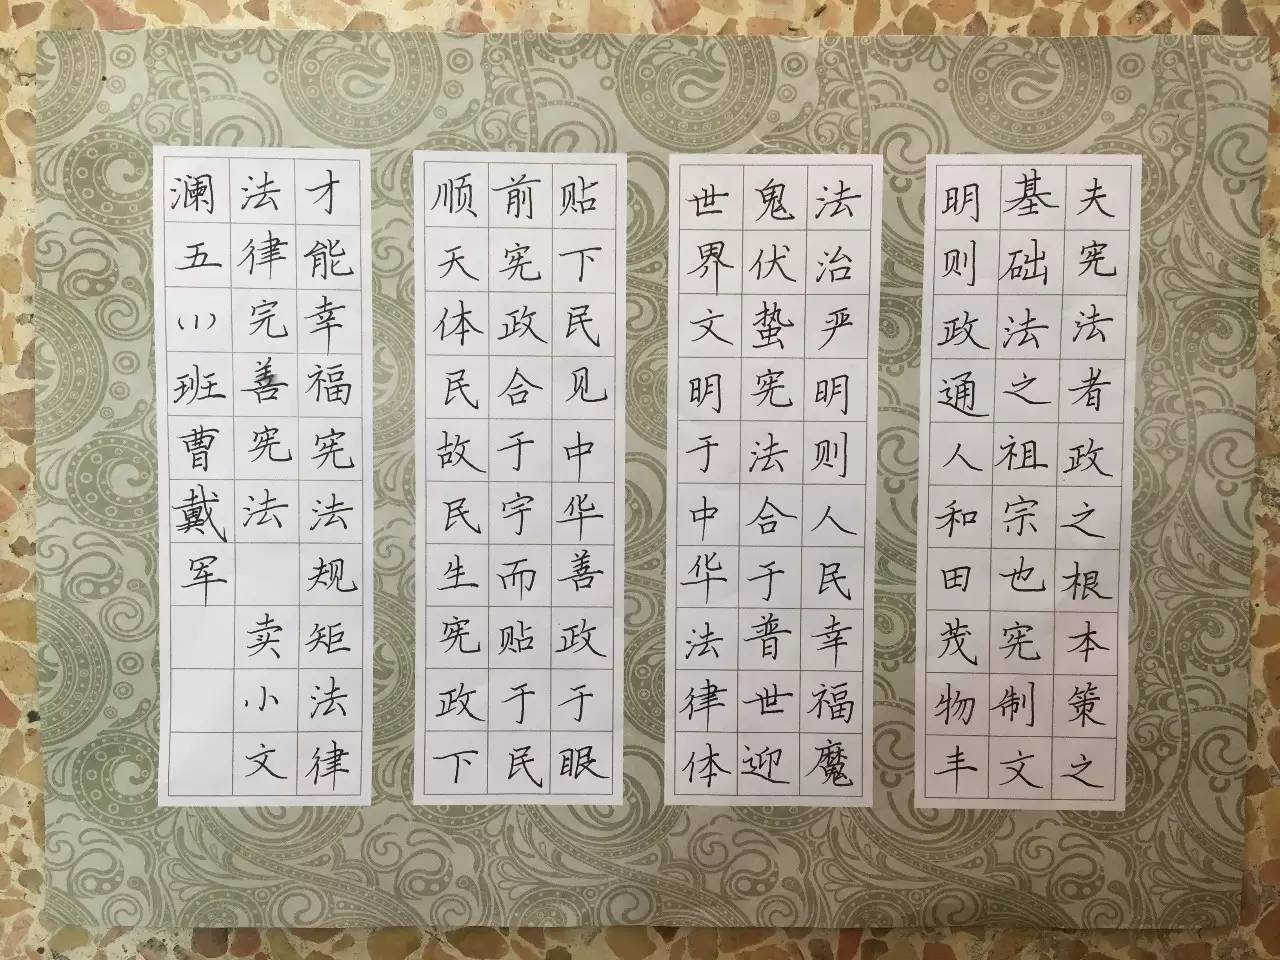 夫宪法者政之根本策之
基础法之祖宗也宪制文
明则政通人和田茂物丰
法治严明则人民幸福魔
鬼伏蛰宪法合于普世迎
世界文明于中华法律体
贴下民见中华善政于眼
前宪政合于宇而贴于民
顺天体民故民生宪政下
才能幸福宪法规矩法律
法律完善宪法 卖小文
澜五(1)班曹戴军